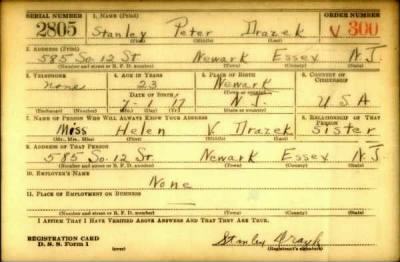 SERIAL NUMBER 1. NAME (Print) ORDER NUMBER
2805 Stanley Peter Drazek V 300
(First) (Middle) (Last)
2. ADDRESS (Print)
585 So. 12 St Newark Essex N.J.
(Number and street or R. F. D. number) (Town) (County) (State)
3. TELEPHONE 4. AGE IN YEARS 5. PLACE OF BIRTH 6. COUNTRY OF CITIZENSHIP
none 23 Newark
DATE OF BIRTH (Town or county)
7-1-17 N.J. U S A
(Exchange) (Number) (Mo.) (Day) (Yr.) (State or country)
7. NAME OF PERSON WHO WILL ALWAYS KNOW YOUR ADDRESS 8. RELATIONSHIP OF THAT PERSON
Miss Helen V. Drazek Sister
(Mr., Mrs., Miss) (First) (Middle) (Last)
9. ADDRESS OF THAT PERSON
585 So. 12 St. Newark Essex N.J.
(Number and street or R. F. D. number) (Town) (County) (State)
10. EMPLOYER'S NAME
None
11. PLACE OF EMPLOYMENT OR BUSINESS
—
(Number and street or R. F. D. number) (Town) (County) (State)
I AFFIRM THAT I HAVE VERIFIED ABOVE ANSWERS AND THAT THEY ARE TRUE.
REGISTRATION CARD
D. S. S. Form 1 (over) Stanley
(Registrant's signature)